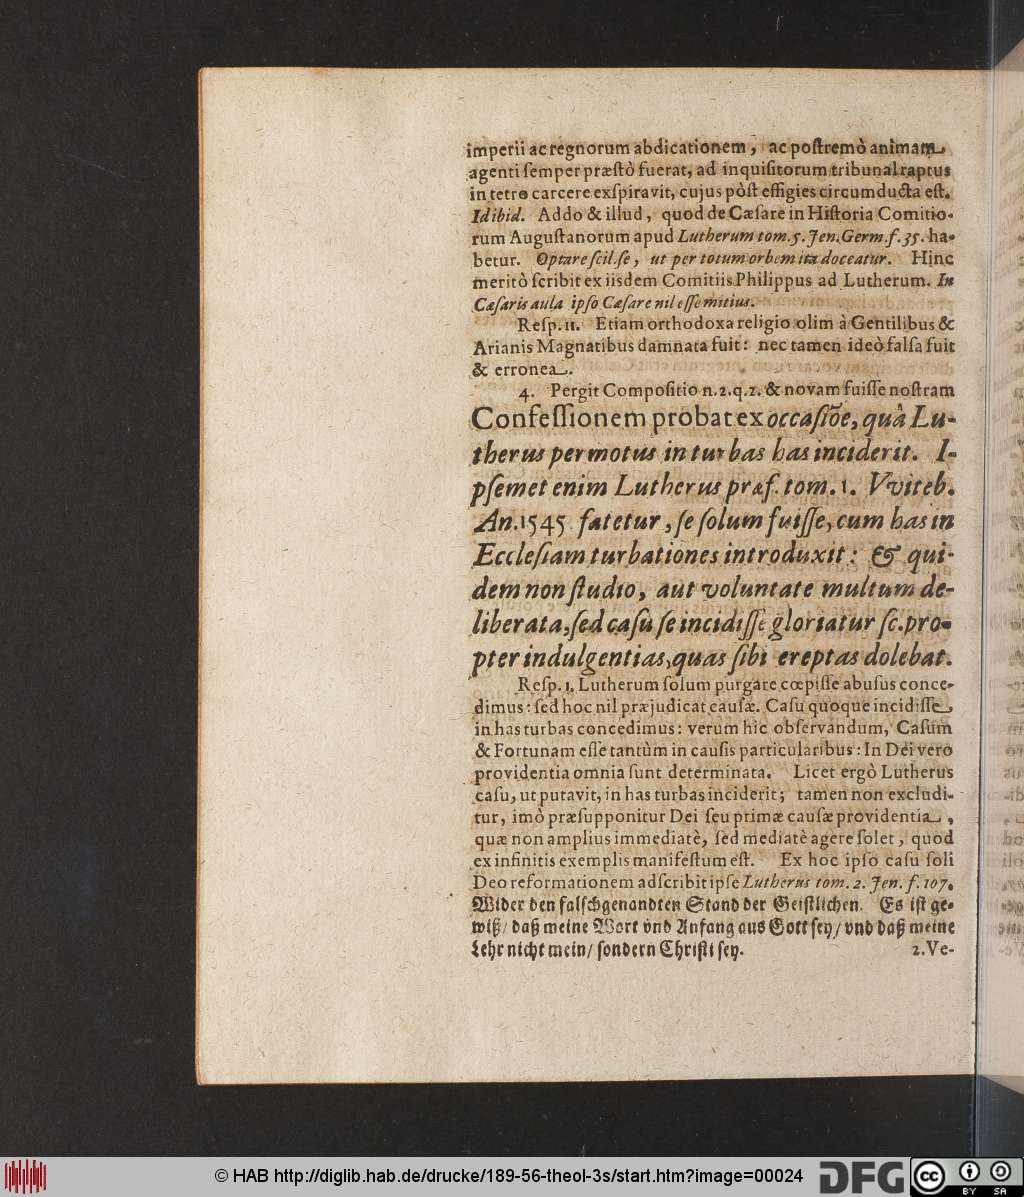 imperii ac regnorum abdicationem, ac poſtremò animam
agenti ſemper præſtò fuerat, ad inquiſitorum tribunal raptus
in tetro carcere exſpiravit, cujus pòſt effigies circumducta eſt.
Idibid. Addo & illud, quod de Cæſare in Hiſtoria Comitio-
rum Auguſtanorum apud Lutherum tom. 5. Jen. Germ. f. 35. ha-
betur. Optare ſcil. ſe, ut per totum orbem ita doceatur. Hinc
meritò ſcribit ex iisdem Comitiis Philippus ad Lutherum. In
Cæſaris aula ipſo Cæſare nil eſſe mitius.
Reſp. 11. Etiam orthodoxa religio olim à Gentilibus &
Arianis Magnatibus damnata fuit: nec tamen ideò falſa fuit
& erronea.
4. Pergit Compoſitio n. 2. q. 2. & novam fuiſſe noſtram
Confeſſionem probat ex occaſiõe, quâ Lu-
therus permotus in turbas has inciderit. I-
pſemet enim Lutherus præf. tom. 1. VViteb.
An. 1545. fatetur, ſe ſolum fuiſſe, cum has in
Eccleſiam turbationes introduxit: & qui-
dem non ſtudio, aut voluntate multum de-
liberata, ſed caſu ſe incidiſſe gloriatur ſc. pro-
pter indulgentias, quas ſibi ereptas dolebat.
Reſp. 1. Lutherum ſolum purgare cœpiſſe abuſus conce-
dimus: ſed hoc nil præjudicat cauſæ. Caſu quoque incidiſſe,
in has turbas concedimus: verum hic obſervandum, Caſum
& Fortunam eſſe tantùm in cauſis particularibus: In Dei vero
providentia omnia ſunt determinata. Licet ergò Lutherus
caſu, ut putavit, in has turbas inciderit; tamen non excludi-
tur, imò præſupponitur Dei ſeu primæ cauſæ providentia,
quæ non amplius immediatè, ſed mediatè agere ſolet, quod
ex infinitis exemplis manifeſtum eſt. Ex hoc ipſo caſu ſoli
Deo reformationem adſcribit ipſe Lutherus tom. 2. Jen. f. 107.
Wider den falſchgenandten Stand der Geiſtlichen. Es iſt ge-
wiß/ daß meine Wort vnd Anfang aus Gott ſey/ vnd daß meine
Lehr nicht mein/ ſondern Chriſti ſey. 2. Ve-
© HAB http://diglib.hab.de/drucke/189-56-theol-3s/start.htm?image=00024
DFG
cc
BY SA